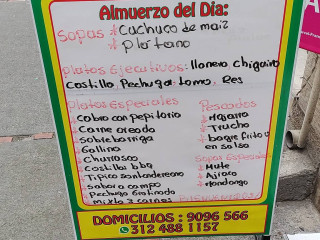 Almuerzo del Día:
Sopas * Cuchuco de maiz
* Platano
Platos Ejecutivos: llanero chiguiro
Costilla Pechuga Lomo Res
Platos Especiales
* Cabro con pepitoria
* Carne oreada
* Sobrebarriga
* Gallina
* Churrasco
* Costilla bbq
* Tipico santandereano
* Sabor a campo
* Pechuga Gratinada
* Mixto 3 carnes
Pescados
* Mojarra
* Trucha
* bagre frito o
en salsa
Sopas Especiales
* Mute
* Ajiaco
* Mondongo
DOMICILIOS: 9096 566
312 488 1157